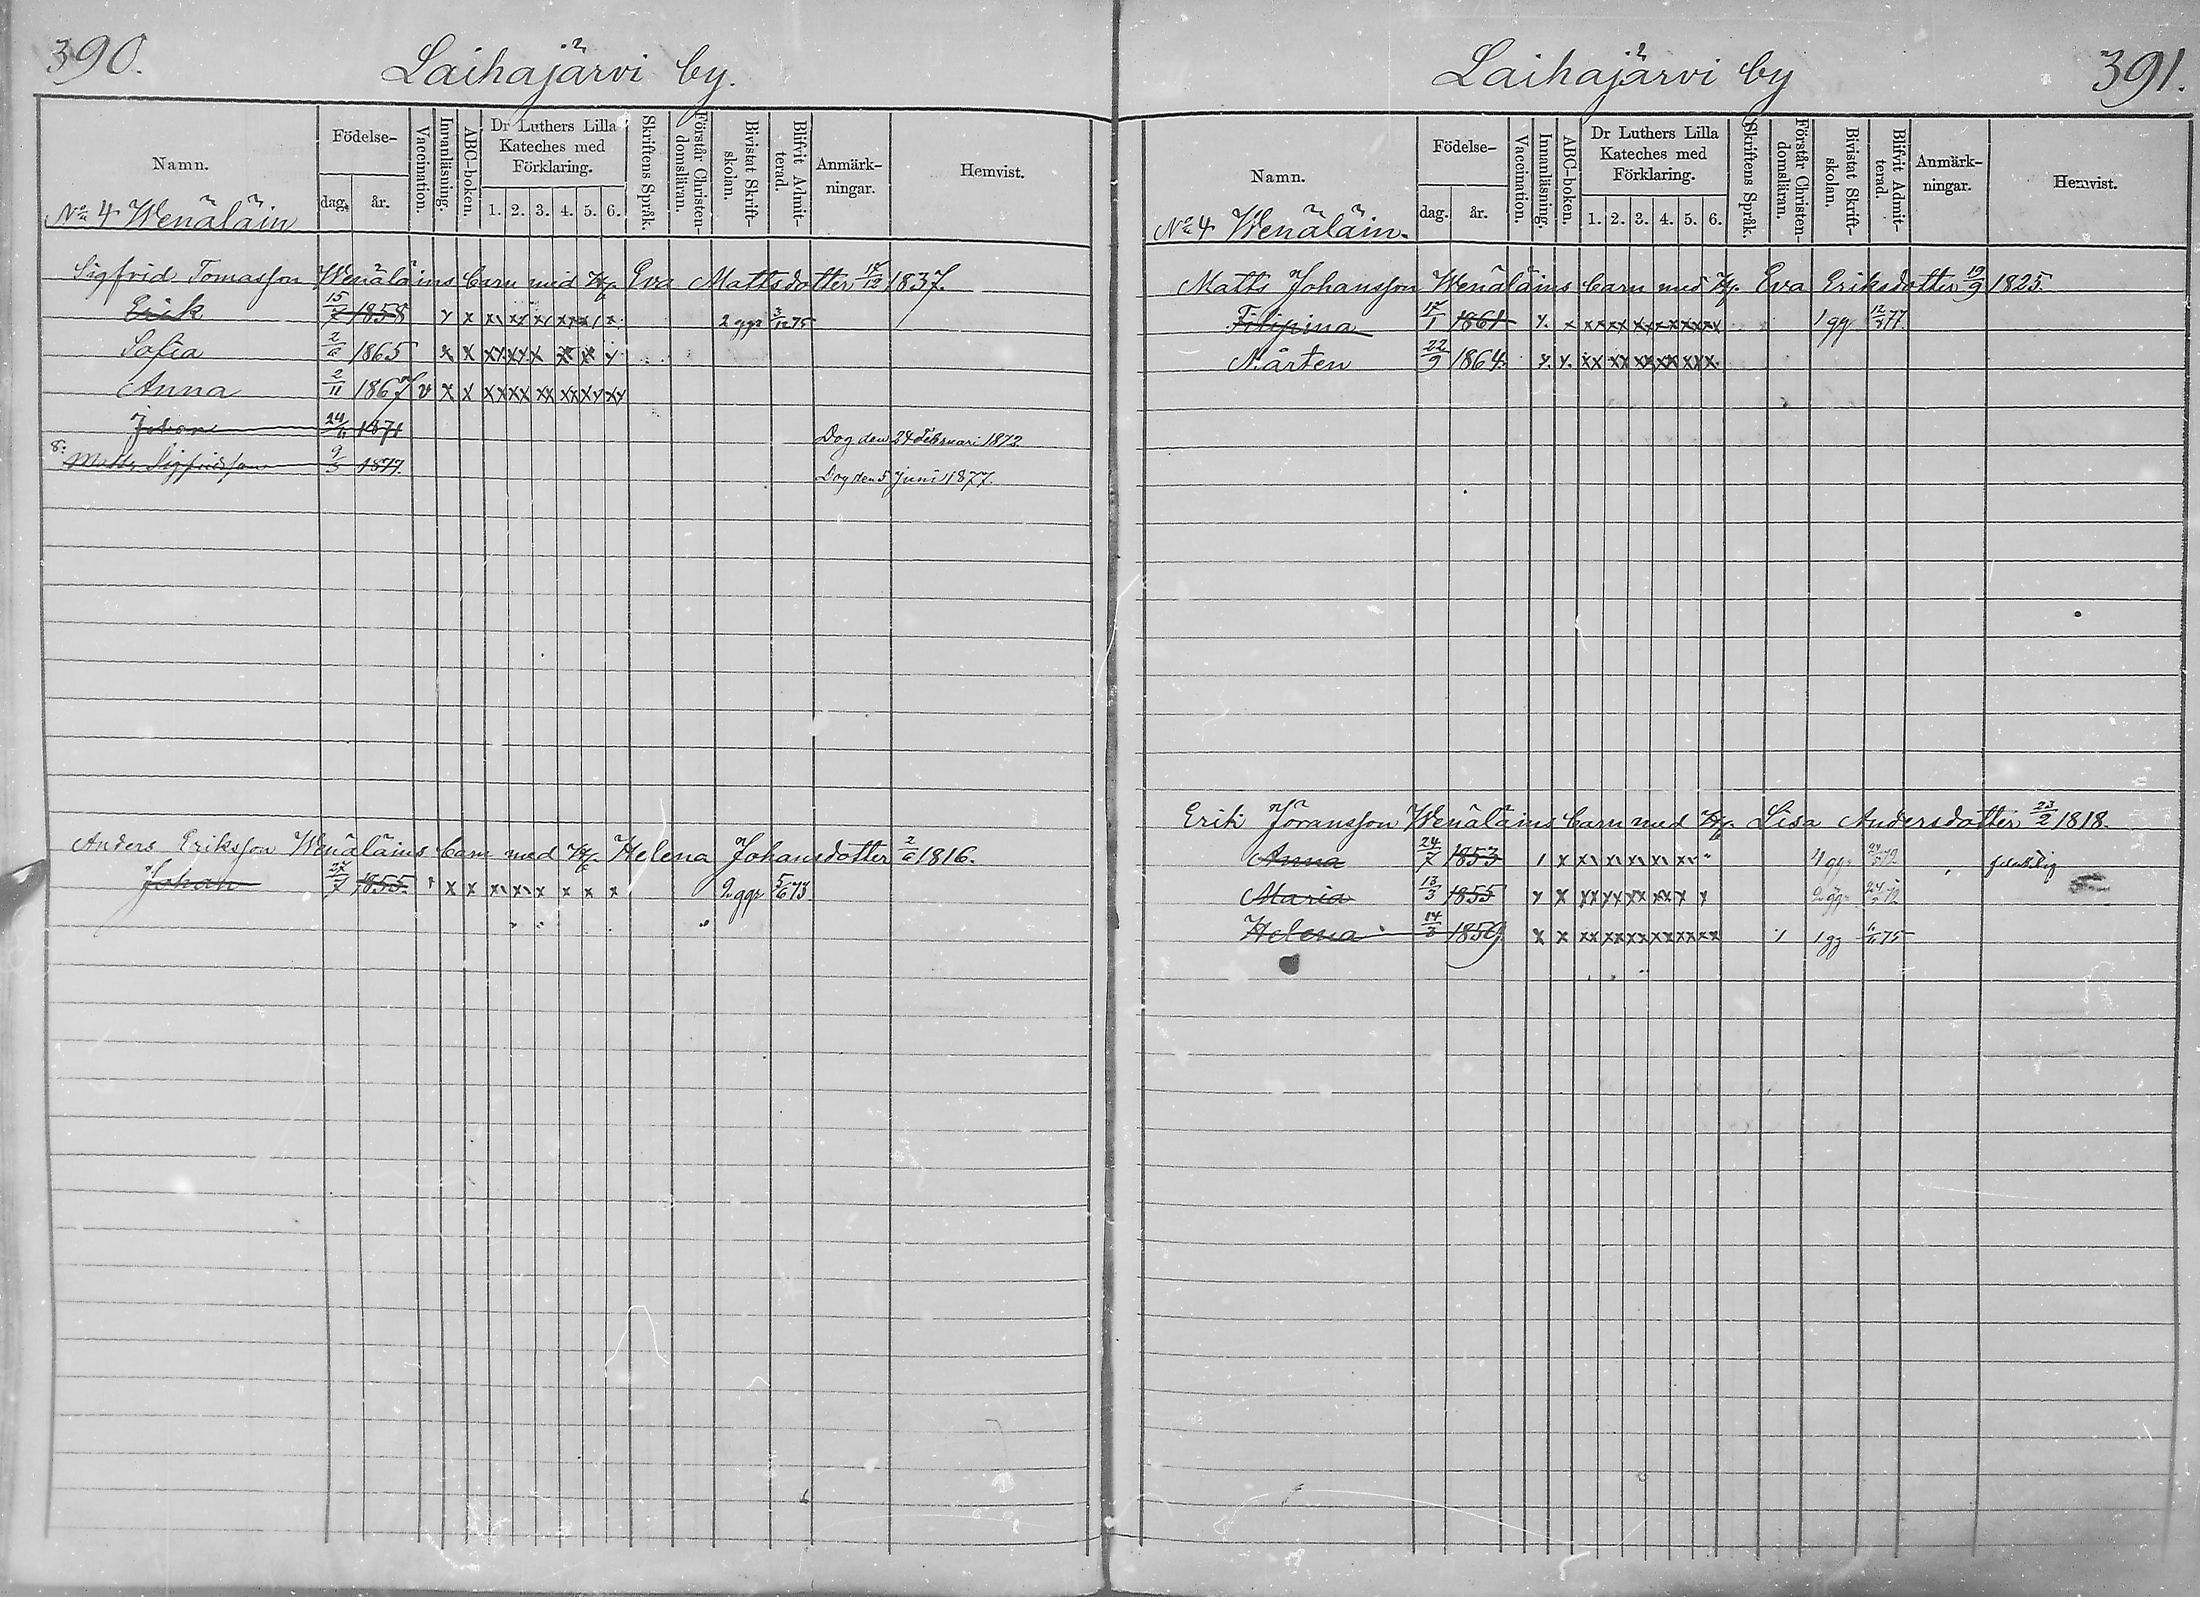 390.
Laihajärvi by.
Namn.
Födelse-
dag. år.
Vaccination.
Innanläsning.
ABC-boken.
Dr Luthers Lilla Kateches med Förklaring.
1. 2. 3. 4. 5. 6.
Skriftens Språk.
Förstår Christen-domsläran.
Bivistat Skrift-skolan.
Blifvit Admit-terad.
Anmärk-ningar.
Hemvist.
No 4 Wenäläin
Sigfrid Tomasson Wenäläins barn med H. Eva Mattsdotter 17/12 1837.
Erik 15/7 1858 2 ggr 3/12 75
Sofia 2/6 1865
Anna 2/11 1867 v
Johan 24/11 1871 Dog den 24 Februari 1872
8: Matts Sigfridsson 9/5 1877. Dog den 5 Juni 1877.
Anders Eriksson Wenäläins barn med H. Helena Johansdotter 2/6 1816.
Johan 27/7 1855. 2 ggr 5/6 73
391.
Laihajärvi by
Namn.
Födelse-
dag. år.
Vaccination.
Innanläsning.
ABC-boken.
Dr Luthers Lilla Kateches med Förklaring.
1. 2. 3. 4. 5. 6.
Skriftens Språk.
Förstår Christen-domsläran.
Bivistat Skrift-skolan.
Blifvit Admit-terad.
Anmärk-ningar.
Hemvist.
No 4 Wenäläin.
Matts Johansson Wenäläins barn med H. Eva Eriksdotter 19/9 1825
Filipina 17/1 1861 1 gg 77
Mårten 22/9 1864
Erik Jöransson Wenäläins barn med H. Lisa Andersdotter 23/2 1818.
Anna 24/7 1853 4 ggr 72
Maria 13/3 1855 2 ggr 72
Helena 14/3 1859 1 gg 75